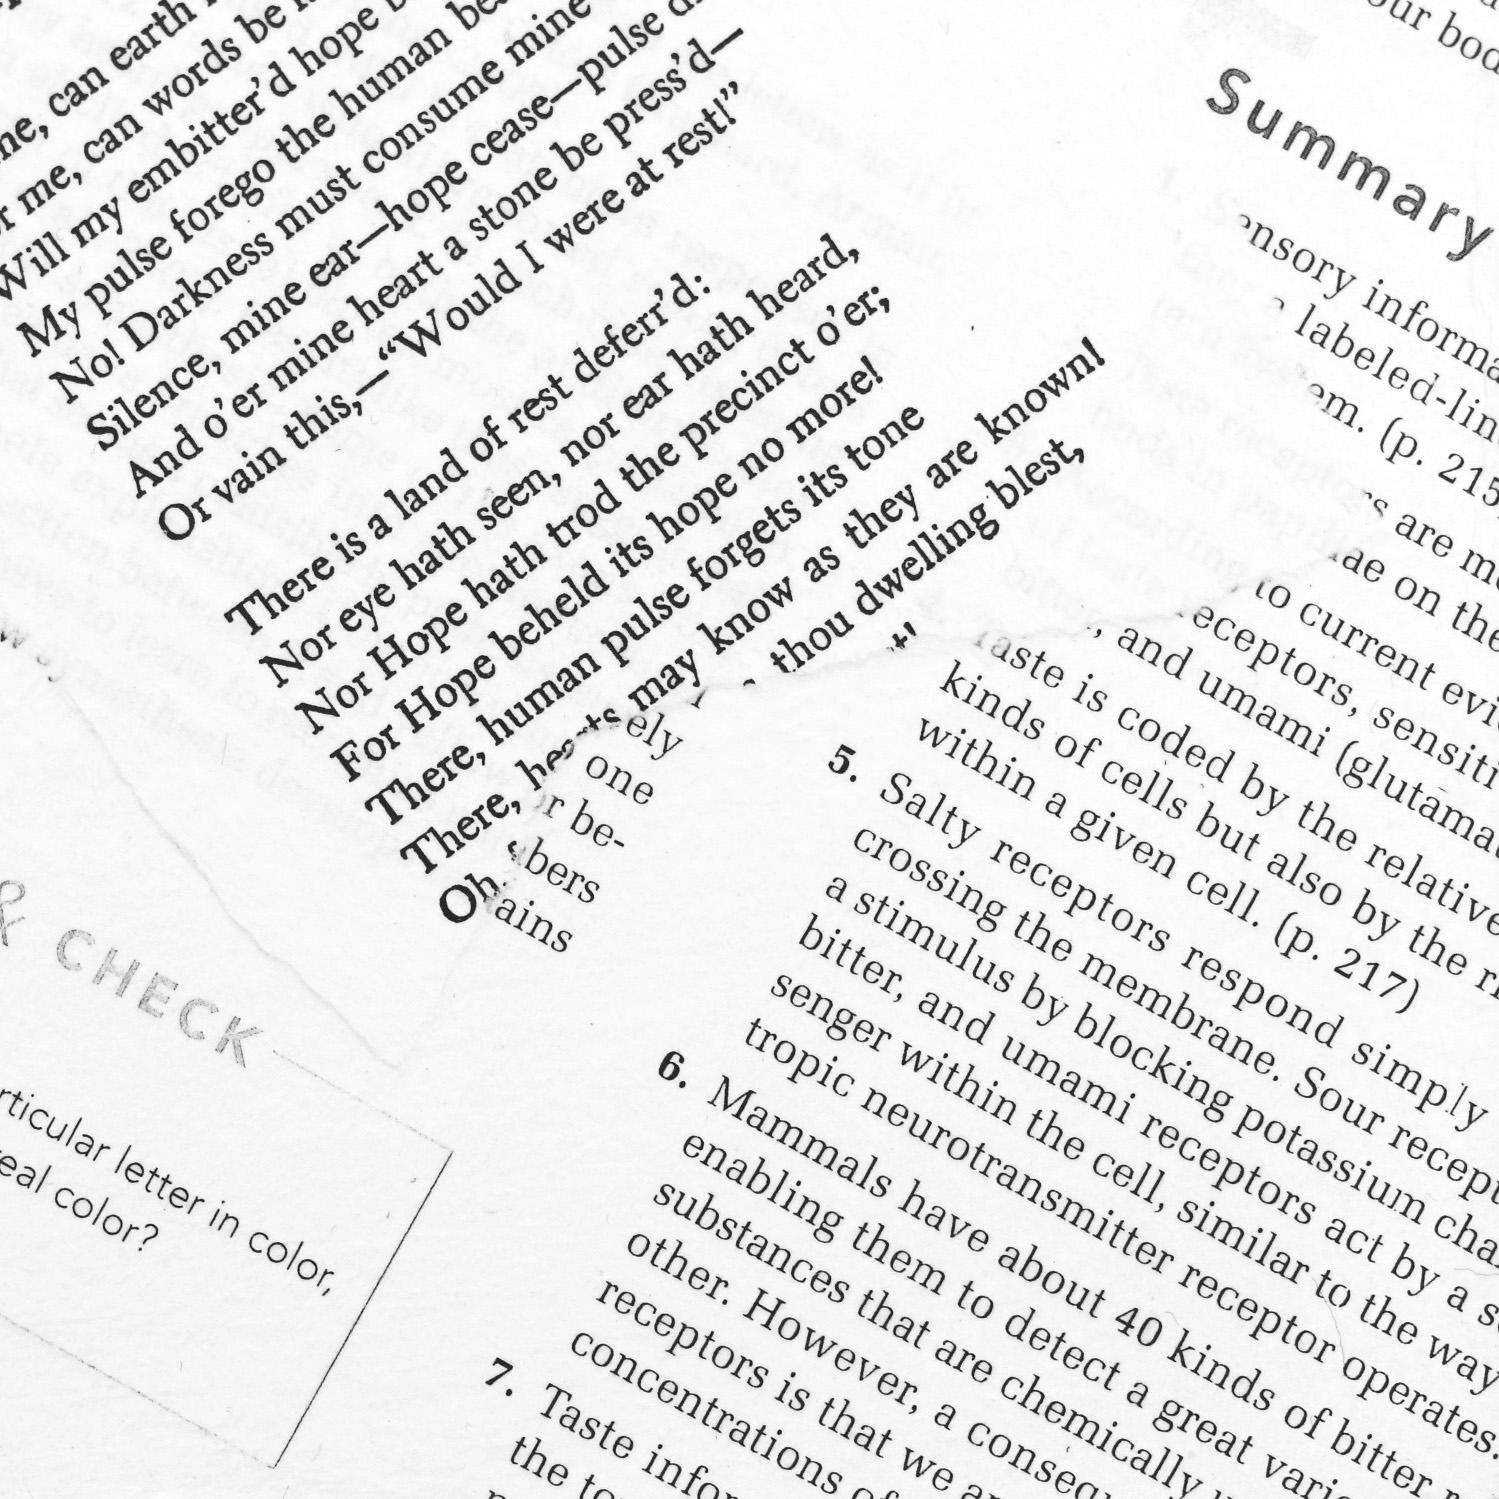 me, can earth
or me, can words be
Will my embitter'd hope
My pulse forego the human
No! Darkness must consume mine
Silence, mine ear—hope cease—pulse
And o'er mine heart a stone be press'd—
Or vain this,—“Would I were at rest!”
There is a land of rest deferr'd:
Nor eye hath seen, nor ear hath heard,
Nor Hope hath trod the precinct o'er;
For Hope beheld its hope no more!
There, human pulse forgets its tone
There, hearts may know as they are known!
Oh, thou dwelling blest,
ely
one
r be-
bers
ains
& CHECK
rticular letter in color,
eal color?
our bod
Summary
ensory informa
labeled-lin
em. (p. 215
rs are mo
ae on the
to current evi
eceptors, sensiti
, and umami (glutama
Taste is coded by the relative
kinds of cells but also by the r
within a given cell. (p. 217)
5. Salty receptors respond simply
crossing the membrane. Sour recept
a stimulus by blocking potassium cha
bitter, and umami receptors act by a s
senger within the cell, similar to the way
tropic neurotransmitter receptor operates.
6. Mammals have about 40 kinds of bitter
enabling them to detect a great vari
substances that are chemically
other. However, a conseq
receptors is that we a
concentrations o
7. Taste infor
the to